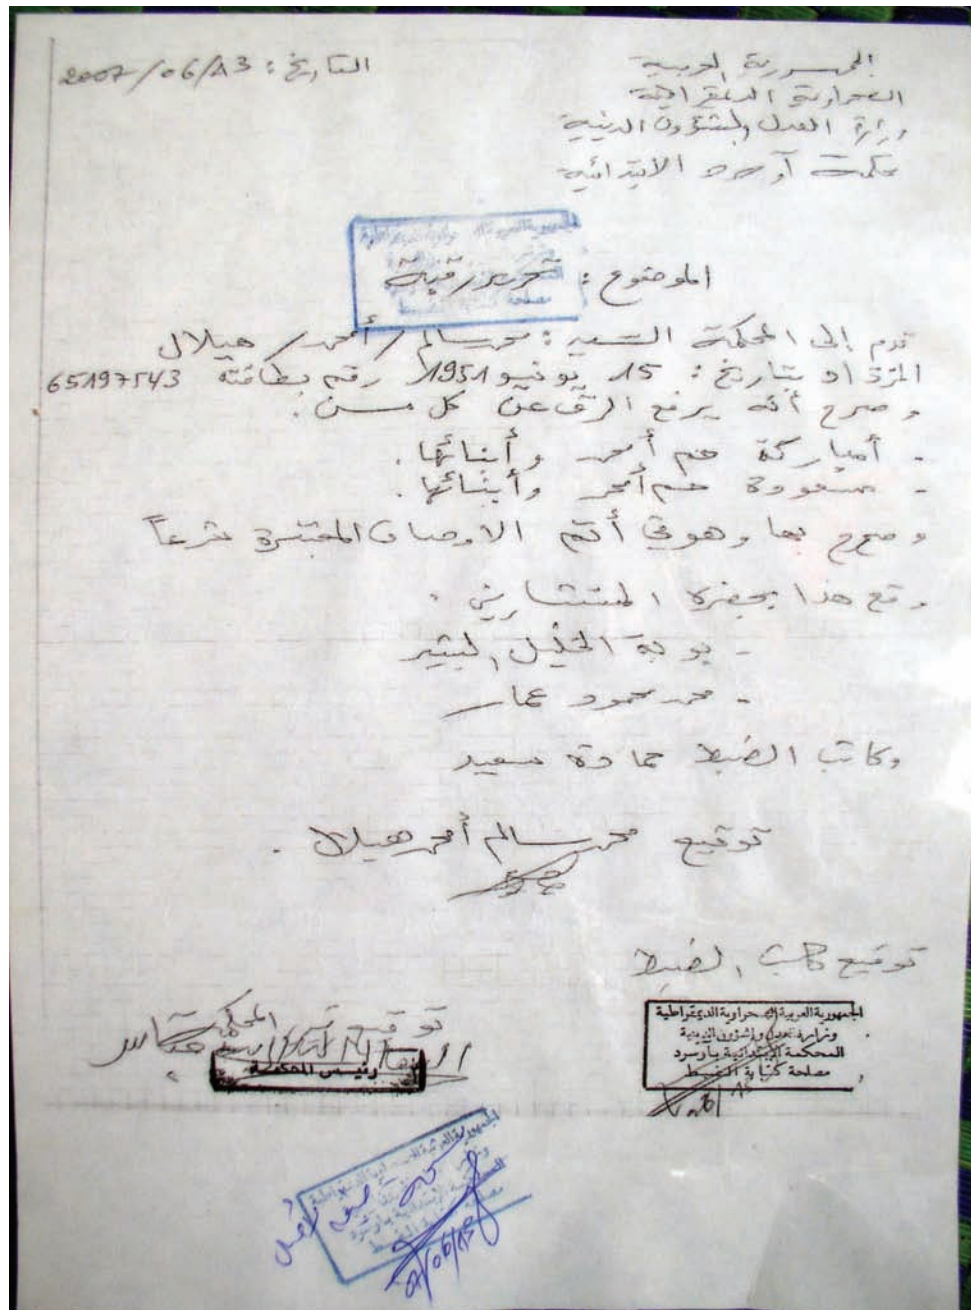 الجمهورية العربية
الصحراوية الديمقراطية
وزارة العدل والشؤون الدينية
محكمة أوسرد الابتدائية
التاريخ: 2007/06/13
الموضوع: تحرير رقبة
قدم إلى المحكمة السيد: محمد سالم / أحمد / هيلال
المزداد بتاريخ: 15 يونيو 1951 رقم بطاقته 65197543
وصرح أنه يرفع الرق عن كل من:
- أمباركة أحمد وأبنائها.
- مسعودة أحمد وأبنائها.
وصرح بها وهو في أتم الاوصاف المعتبرة شرعاً
وقع هذا بحضرة المستشارين:
- بوبة الخليل البشير
- محمد محمود عمار
وكاتب الضبط حمادة سعيد
توقيع محمد سالم أحمد هيلال.
توقيع كاتب الضبط
الجمهورية العربية الصحراوية الديمقراطية
وزارة العدل والشؤون الدينية
المحكمة الإبتدائية بأوسرد
مصلحة كتابة الضبط
توقيع المحكمة
رئيس المحكمة